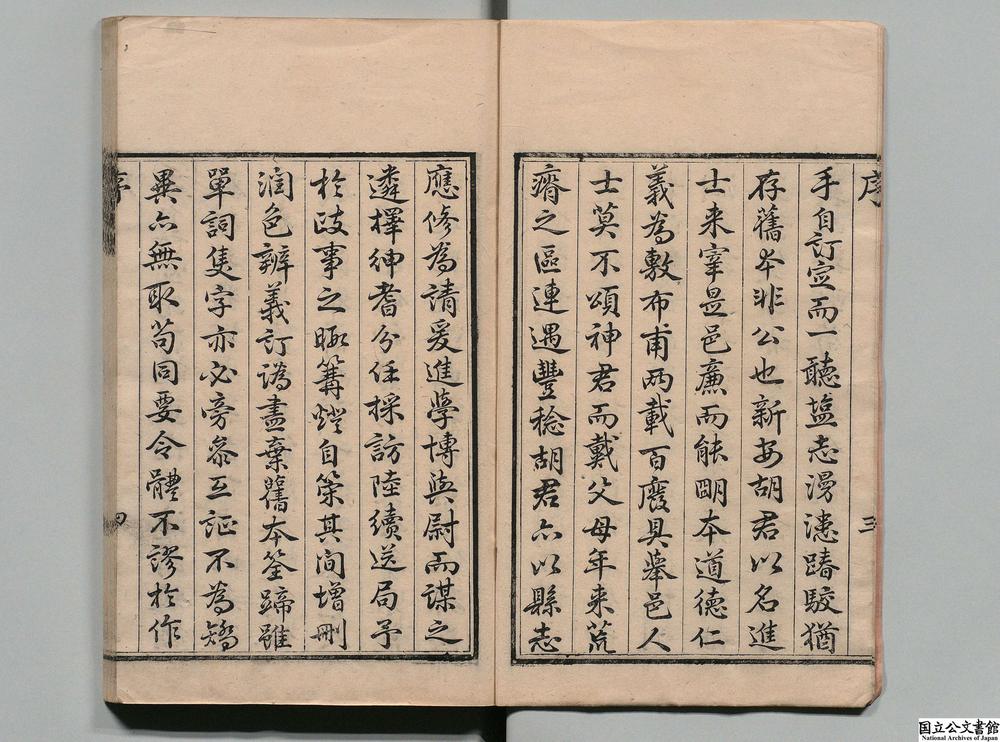 序
三
手自訂定而一聽塩志漫漶踳駮猶
存舊本非公也新安胡君以名進
士来宰是邑廉而能明本道德仁
義為敷布甫两載百廢具舉邑人
士莫不頌神君而戴父母年来荒
瘠之區連遇豐稔胡君亦以縣志
應修為請爰進學博與尉而謀之
遴擇紳耆分任採訪陸續送局予
於政事之暇篝燈自策其间增刪
潤色辨義訂譌盡棄舊本筌蹄雖
單詞隻字亦必旁叅互証不為矯
異亦無取苟同要令體不謬於作
序
四
国立公文書館
National Archives of Japan